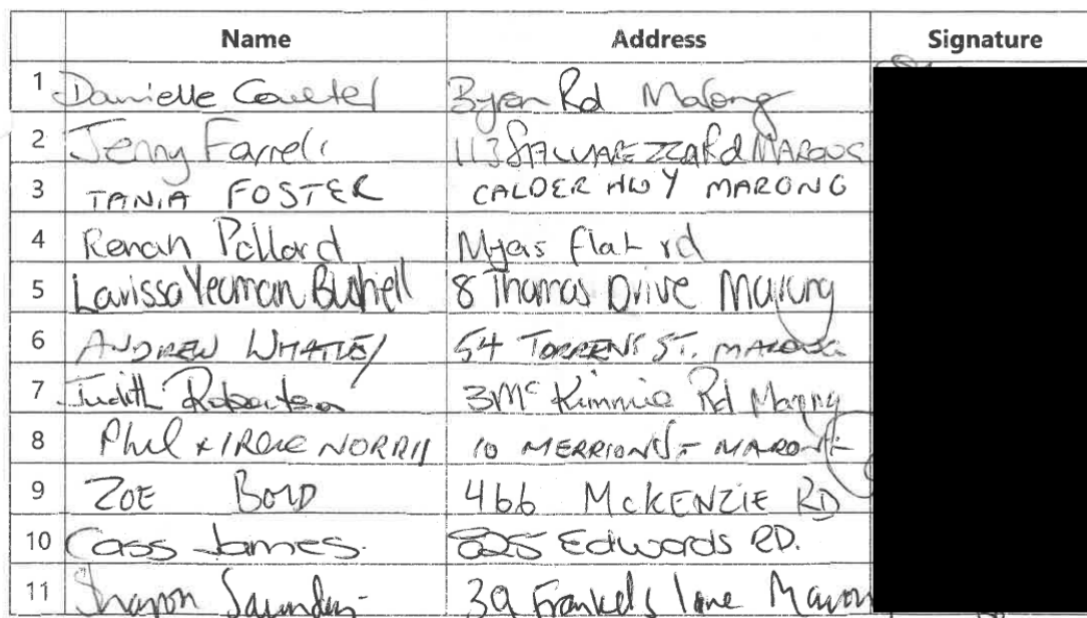 Name Address Signature
1 Danielle Byron Rd Marong
2 Jenny Farrell 113 Rd MARONG
3 TANIA FOSTER CALDER HWY MARONG
4 Renah Pollard Myers flat rd
5 Larissa Yeoman Bushell 8 Thomas Drive Marong
6 ANDREW WHATLEY 54 TORRENS ST. MARONG
7 Judith Robertson 3 McKimmie Rd Marong
8 Phil + IRENE NORRIS 10 MERRION ST MARONG
9 ZOE 466 MCKENZIE RD
10 Cass James. 825 Edwards RD.
11 Sharon Saunders 39 lane Marong